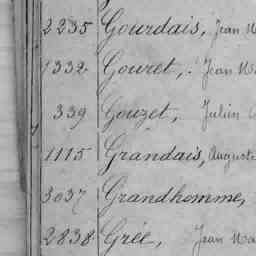 2235 Gourdais, Jean M
1332 Gouret, Jean Ma
339 Gouzet, Julien
1115 Grandais, Auguste
3037 Grandhomme,
2838 Grée, Jean Ma